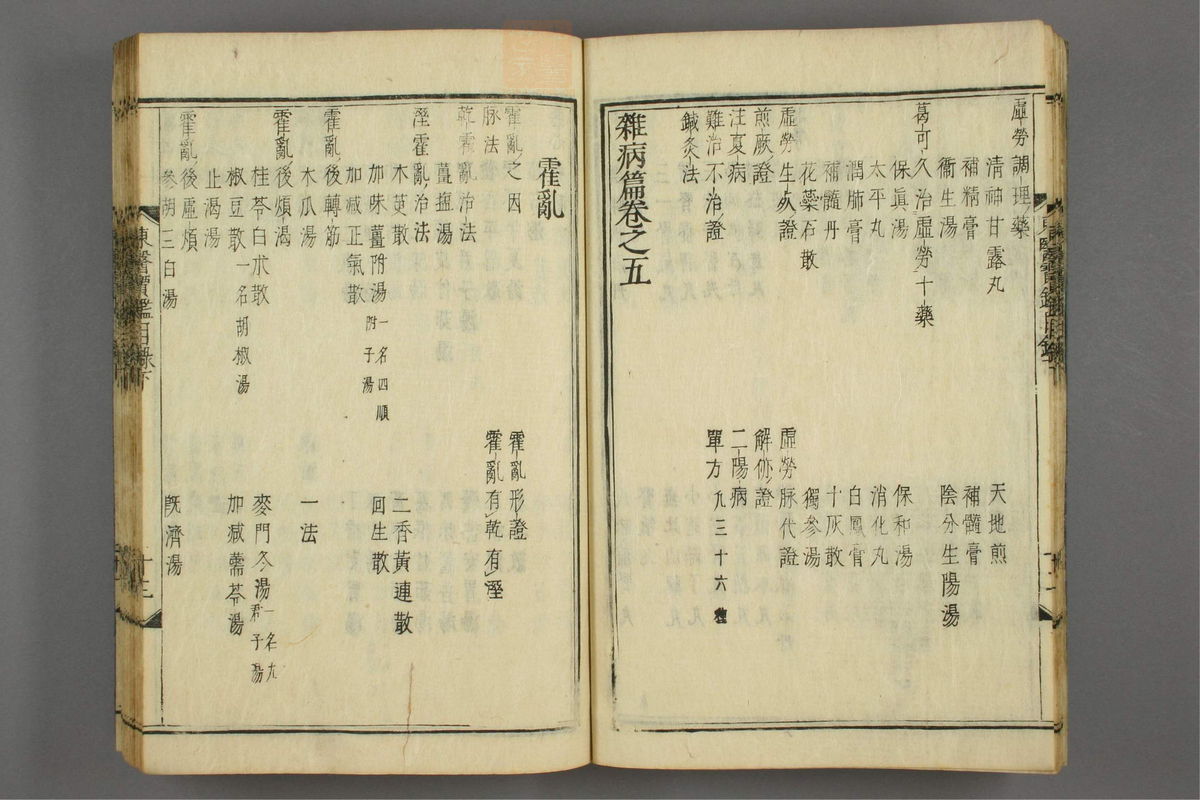 虛勞調理藥
淸神甘露丸　天地煎
補精膏　補髓膏
衞生湯　陰分生陽湯
葛可久治虛勞十藥
保眞湯　保和湯
太平丸　消化丸
潤肺膏　白鳳膏
補髓丹　十灰散
花蘂石散　獨參湯
虛勞生死證　虛勞脉代證
煎厥證　解㑊證
注夏病　二陽病
難治不治證　單方凡三十六種
鍼灸法
雜病篇卷之五
霍亂
霍亂之因　霍亂形證
脉法　霍亂有乾有溼
乾霍亂治法
薑鹽湯
溼霍亂治法
木萸散　二香黃連散
加味薑附湯一名四順附子湯　回生散
加減正氣散
霍亂後轉筋
木瓜湯　一法
霍亂後煩渴
桂苓白朮散　麥門冬湯一名九君子湯
椒豆散一名胡椒湯　加減薷苓湯
止渴湯
霍亂後虛煩
參胡三白湯　旣濟湯
東醫寶鑑目錄下　十三